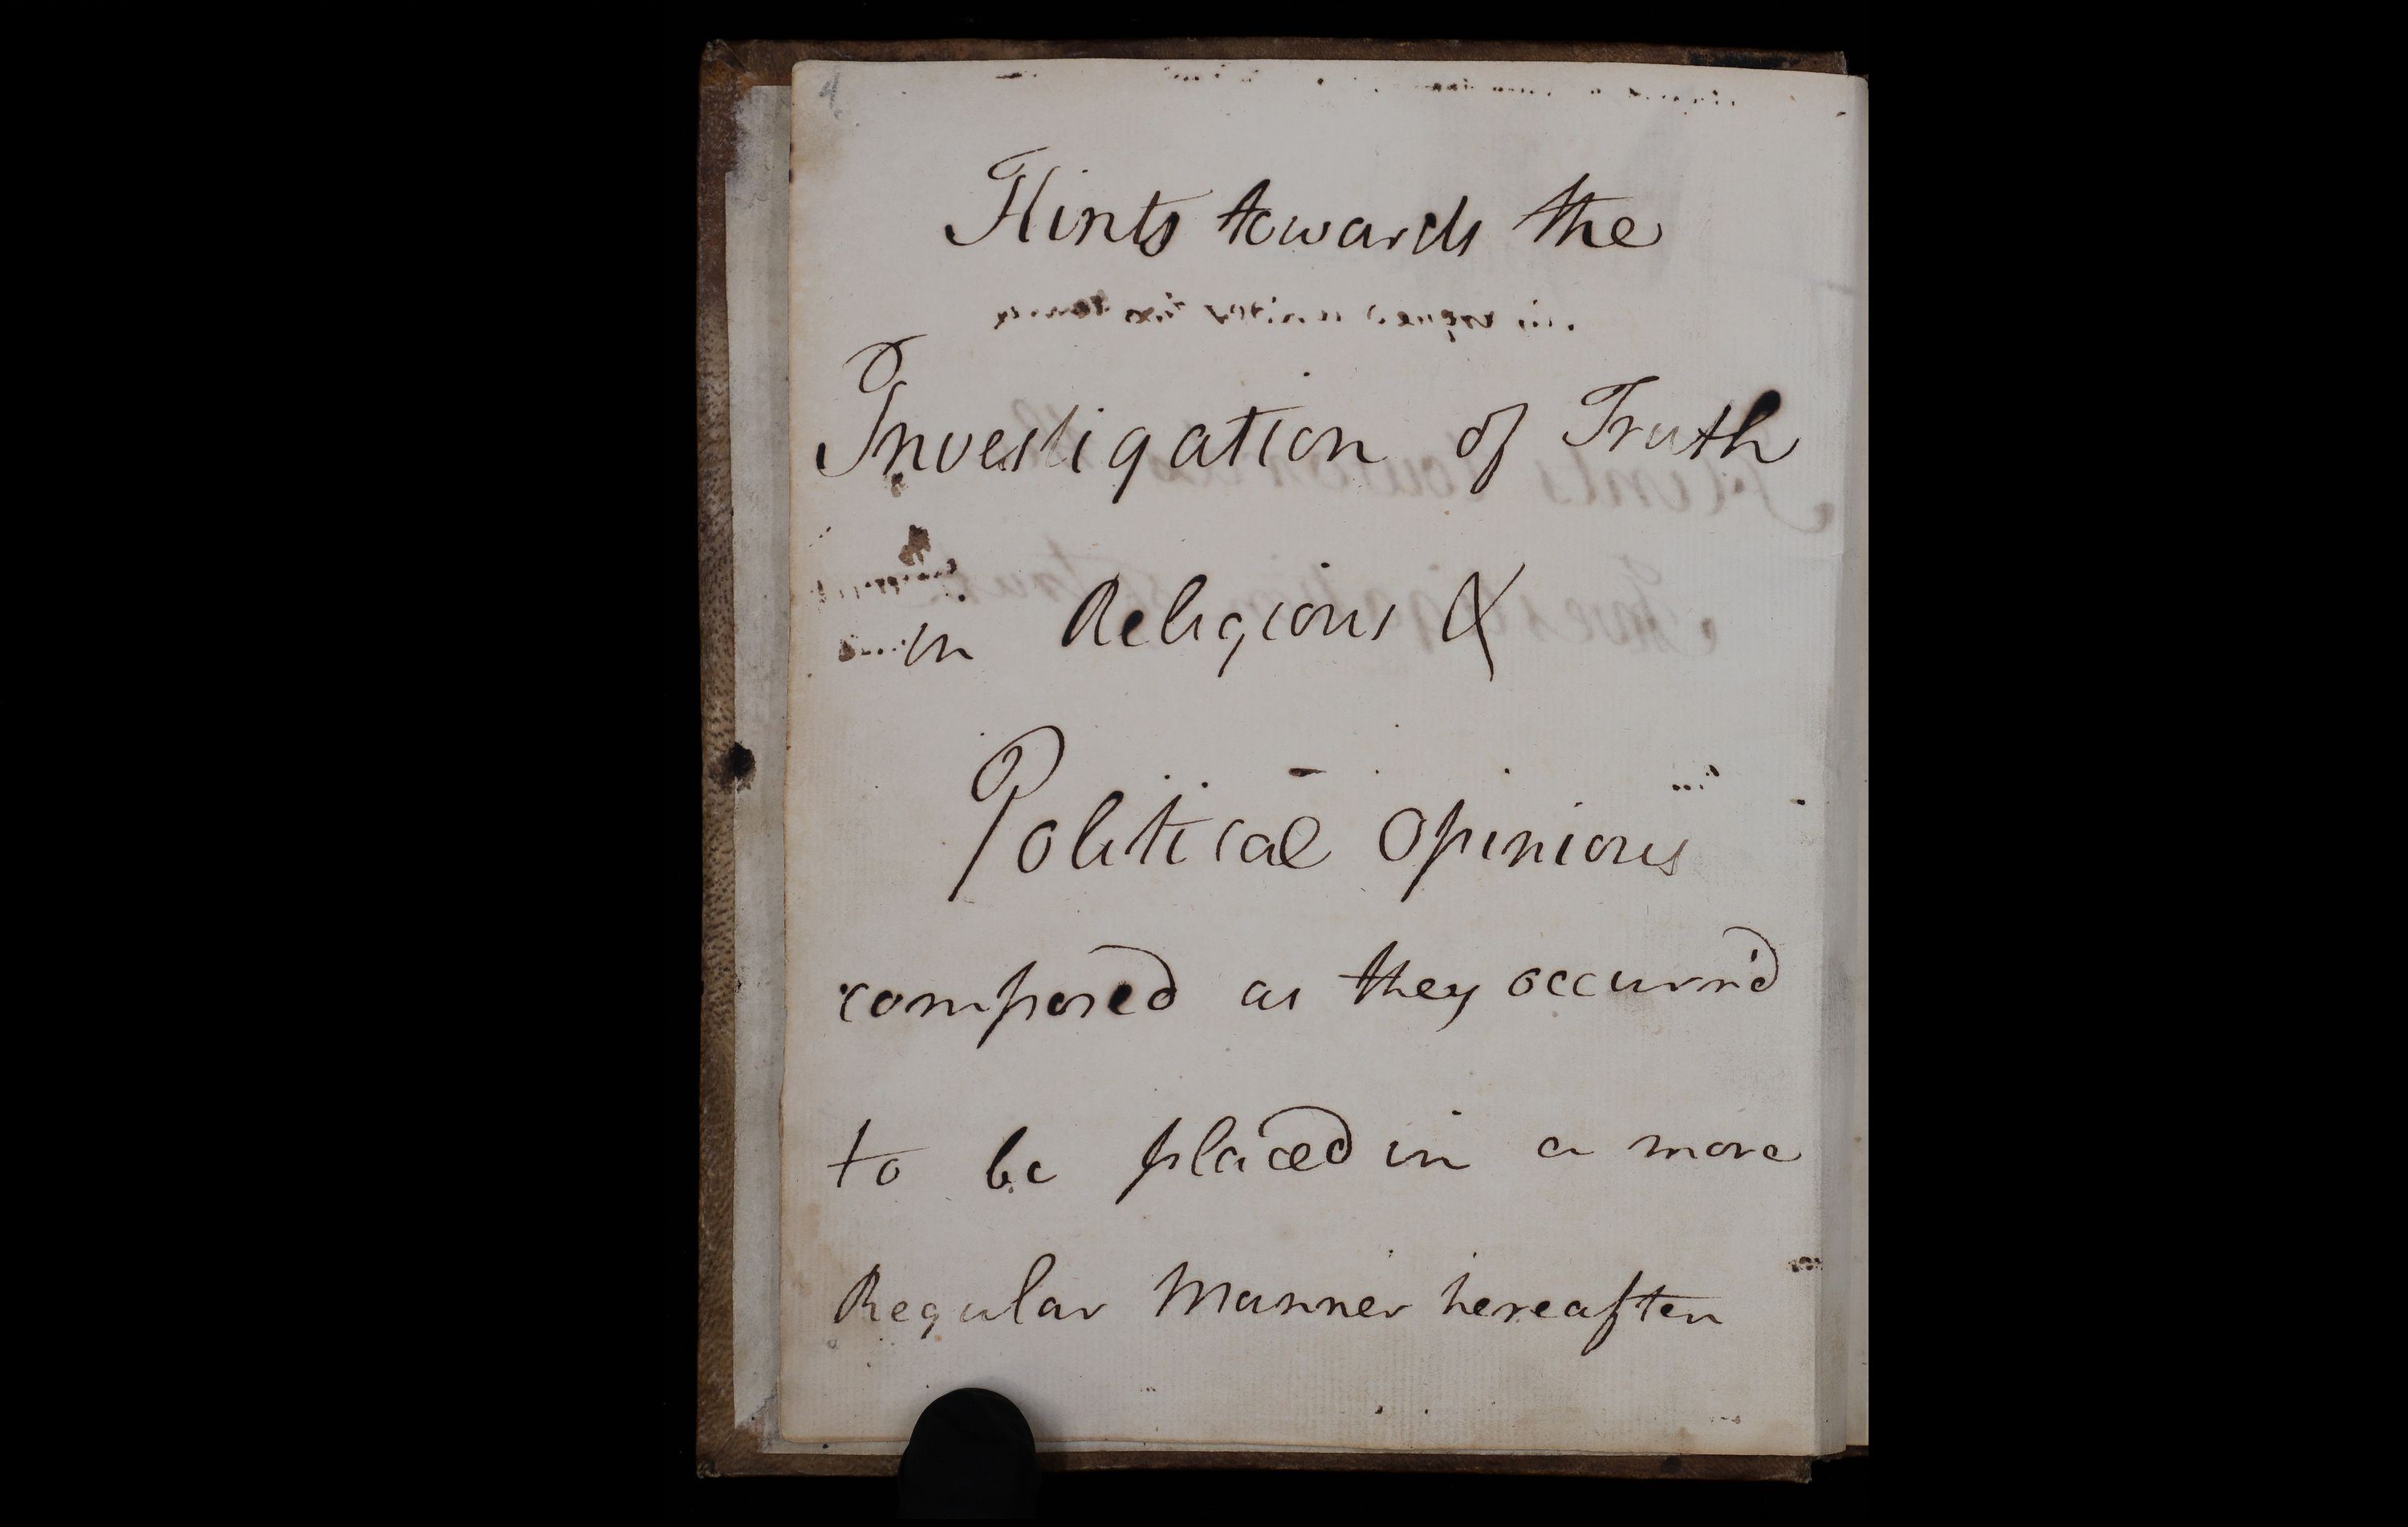 4
Hints towards the
Investigation of Truth
in Religious &
Political Opinions
composed as they occurr'd
to be placed in a more
Regular Manner hereafter